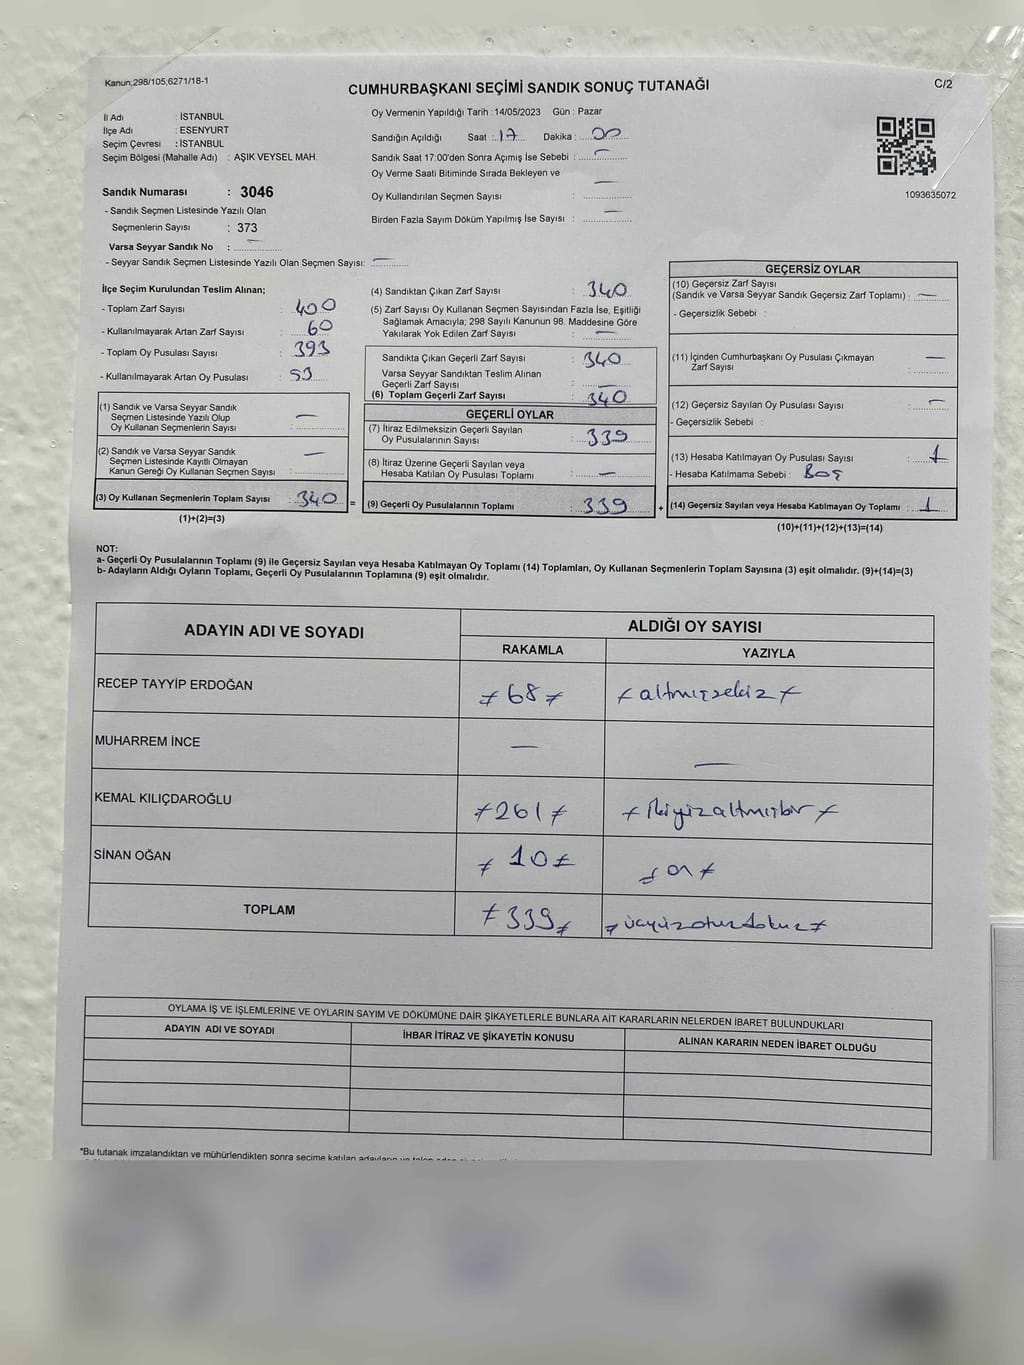 Kanun;298/105;6271/18-1
CUMHURBAŞKANI SEÇİMİ SANDIK SONUÇ TUTANAĞI
C/2
İl Adı : İSTANBUL
İlçe Adı : ESENYURT
Seçim Çevresi : İSTANBUL
Seçim Bölgesi (Mahalle Adı) : AŞIK VEYSEL MAH.
Sandık Numarası : 3046
- Sandık Seçmen Listesinde Yazılı Olan
Seçmenlerin Sayısı : 373
Varsa Seyyar Sandık No : —
- Seyyar Sandık Seçmen Listesinde Yazılı Olan Seçmen Sayısı: —
Oy Vermenin Yapıldığı Tarih : 14/05/2023 Gün : Pazar
Sandığın Açıldığı Saat : 17 Dakika : 00
Sandık Saat 17:00'den Sonra Açımış İse Sebebi : —
Oy Verme Saati Bitiminde Sırada Bekleyen ve
Oy Kullandırılan Seçmen Sayısı : —
Birden Fazla Sayım Döküm Yapılmış İse Sayısı : —
1093635072
İlçe Seçim Kurulundan Teslim Alınan;
- Toplam Zarf Sayısı : 400
- Kullanılmayarak Artan Zarf Sayısı : 60
- Toplam Oy Pusulası Sayısı : 393
- Kullanılmayarak Artan Oy Pusulası : 53
(1) Sandık ve Varsa Seyyar Sandık
Seçmen Listesinde Yazılı Olup
Oy Kullanan Seçmenlerin Sayısı : —
(2) Sandık ve Varsa Seyyar Sandık
Seçmen Listesinde Kayıtlı Olmayan
Kanun Gereği Oy Kullanan Seçmen Sayısı : —
(3) Oy Kullanan Seçmenlerin Toplam Sayısı : 340 =
(1)+(2)=(3)
(4) Sandıktan Çıkan Zarf Sayısı : 340
(5) Zarf Sayısı Oy Kullanan Seçmen Sayısından Fazla İse, Eşitliği
Sağlamak Amacıyla; 298 Sayılı Kanunun 98. Maddesine Göre
Yakılarak Yok Edilen Zarf Sayısı : —
Sandıkta Çıkan Geçerli Zarf Sayısı : 340
Varsa Seyyar Sandıktan Teslim Alınan
Geçerli Zarf Sayısı : —
(6) Toplam Geçerli Zarf Sayısı : 340
GEÇERLİ OYLAR
(7) İtiraz Edilmeksizin Geçerli Sayılan
Oy Pusulalarının Sayısı : 339
(8) İtiraz Üzerine Geçerli Sayılan veya
Hesaba Katılan Oy Pusulası Toplamı : —
(9) Geçerli Oy Pusulalarının Toplamı : 339 +
GEÇERSİZ OYLAR
(10) Geçersiz Zarf Sayısı
(Sandık ve Varsa Seyyar Sandık Geçersiz Zarf Toplamı) : —
- Geçersizlik Sebebi :
(11) İçinden Cumhurbaşkanı Oy Pusulası Çıkmayan
Zarf Sayısı : —
(12) Geçersiz Sayılan Oy Pusulası Sayısı : —
- Geçersizlik Sebebi :
(13) Hesaba Katılmayan Oy Pusulası Sayısı : 1
- Hesaba Katılmama Sebebi : Boş
(14) Geçersiz Sayılan veya Hesaba Katılmayan Oy Toplamı : 1
(10)+(11)+(12)+(13)=(14)
NOT:
a- Geçerli Oy Pusulalarının Toplamı (9) ile Geçersiz Sayılan veya Hesaba Katılmayan Oy Toplamı (14) Toplamları, Oy Kullanan Seçmenlerin Toplam Sayısına (3) eşit olmalıdır. (9)+(14)=(3)
b- Adayların Aldığı Oyların Toplamı, Geçerli Oy Pusulalarının Toplamına (9) eşit olmalıdır.
ADAYIN ADI VE SOYADI
ALDIĞI OY SAYISI
RAKAMLA YAZIYLA
RECEP TAYYİP ERDOĞAN ≠ 68 ≠ ≠ altmışsekiz ≠
MUHARREM İNCE — —
KEMAL KILIÇDAROĞLU ≠ 261 ≠ ≠ ikiyüzaltmışbir ≠
SİNAN OĞAN ≠ 10 ≠ ≠ on ≠
TOPLAM ≠ 339 ≠ ≠ üçyüzotuzdokuz ≠
OYLAMA İŞ VE İŞLEMLERİNE VE OYLARIN SAYIM VE DÖKÜMÜNE DAİR ŞİKAYETLERLE BUNLARA AİT KARARLARIN NELERDEN İBARET BULUNDUKLARI
ADAYIN ADI VE SOYADI İHBAR İTİRAZ VE ŞİKAYETİN KONUSU ALINAN KARARIN NEDEN İBARET OLDUĞU
*Bu tutanak imzalandıktan ve mühürlendikten sonra seçime katılan adayların